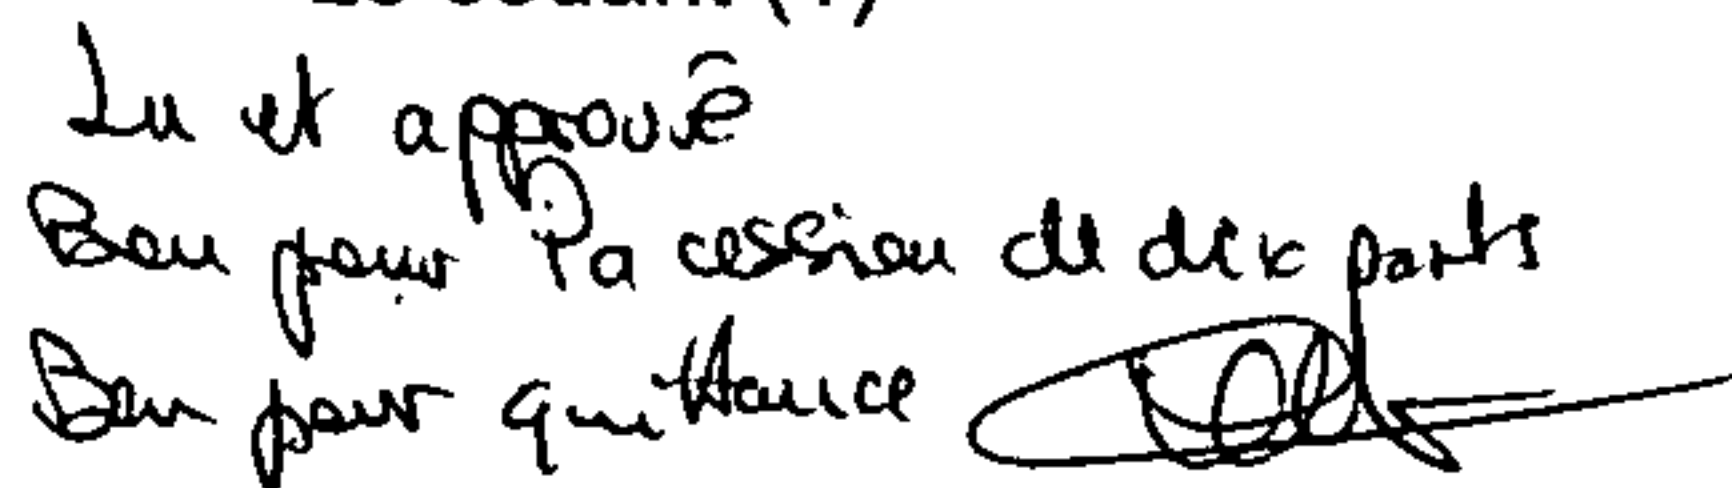 Lu et approuvé
Bon pour la cession de dix parts
Bon pour quittance